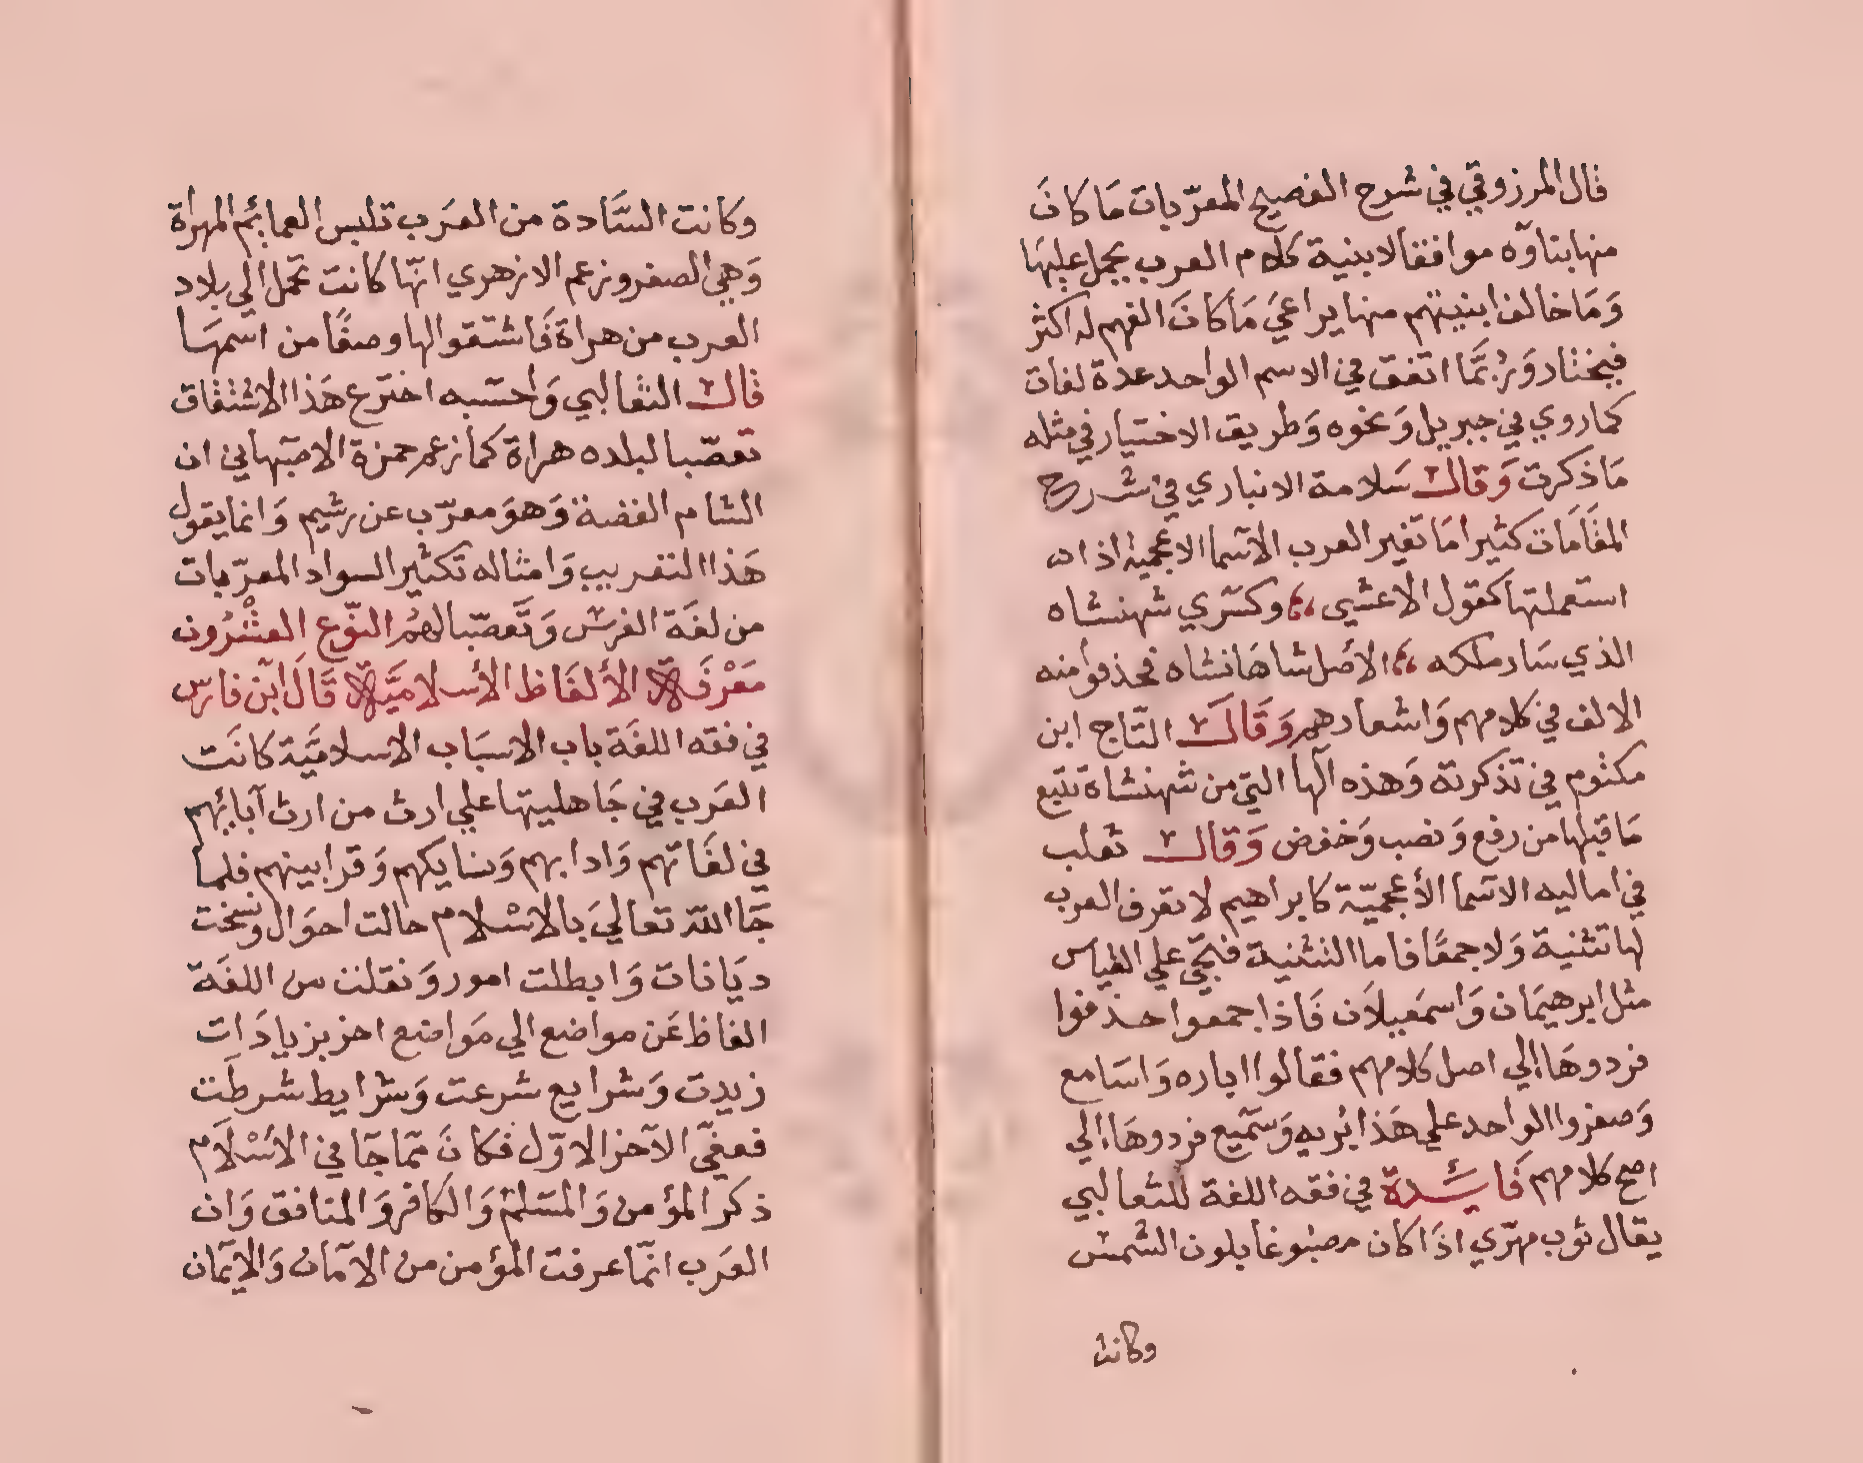 قال المرزوقي في شرح الفصيح المعرّبات مَا كانَ
منها بناوّه موافقا لابنية كلام العرب يحمل عليهَا
وَمَا خالف ابنيتهم منها يراعيَ مَا كانَ الفهم له اكثر
فيختار وَرُبّمَا اتفق في الاسم الواحد عدة لغات
كما روي في جبريل وَنحوه وَطريق الاختيار في مثله
مَا ذكرت وَقالـــ سَلامة الانباري في شـرح
المقَامَات كثيرا مَا تغير العرب الآسما الاعجمية اذا
استعملتها كقول الاعشي ،، وكسَري شهنشاه
الذي سَار ملكه ،، الاصَل شاهَانشاه فحذفوا منه
الالف في كلامهم وَاشعارهم وَقَالَــ التّاج ابن
مكتوم في تذكرته وَهذه الها التي من شهنشاة تتبع
مَا قبلها من رفع وَنصب وَخفض وَقالــ ثعلب
في اماليه الاسَما الأعجميّة كابراهيم لا تعرف العرب
لها تثنية وَلا جمعًا فاما التثنية فيجَي علي القياس
مثل ابرهيمَان وَاسمَعيلاَن فَاذا جمعوا حـذفوا
فردوهَا الي اصل كلامهم فقالوا اباره وَاسَامع
وَصغروا الواحد علي هَذا بُريه وَسَميع فردوهَا الي
اصح كلامهم فَايـــدة في فقه اللغة للثعالبي
يقال ثوب مهرّي اذَا كان مصبوغا بلون الشمس
وكانت
وكانت السَّادة من العرَب تلبس العمايم المهراة
وَهي الصفر وزعم الازهري انّها كانت تحمل الي بلاد
العرب من هراة فَاشتقوا لها وصفًا من اسمهَـا
قالــ الثعالبي وَاحسَبه اخترع هَذا الاشتقاق
تعصّبا لبلده هراة كما زعم حمزة الاصبَهاني ان
السَام الفضة وَهوَ معرّب عن سيم وَانما يقول
هَذا التعريب وَامثاله تكثير السواد المعرّبات
من لغَة الفرس وَتَعصّبا لهمُ النّوع العشْرُون
مَعْرفَة الألفَاظ الأسلاميَّة قَالَ ابن فارس
في فقه اللغَة باب الاسبَاب الاسلاميَّة كانَت
العرَب في جَاهليتها علي ارث من ارث آبائهم
في لغَاتهم وَادابهم وَنسايكهم وَقرابينهم فلما
جَا الله تعاليَ بالاسْلام حالت احوَال ونسخت
ديَانات وَابطلت امور وَنقلت من اللغَة
الفاظ عَن مواضع الي مَواضع اخر بزيادَات
زيدت وَشرايع شرعت وَشرايط شرطَت
فعفّي الآخر الاوّل فكانَ ممّا جَا في الاسْلَام
ذكر المؤمن وَالمسَلم وَالكافر وَالمنافق وَان
العرَب انّما عرفت المؤمن من الامَان وَالايمَان